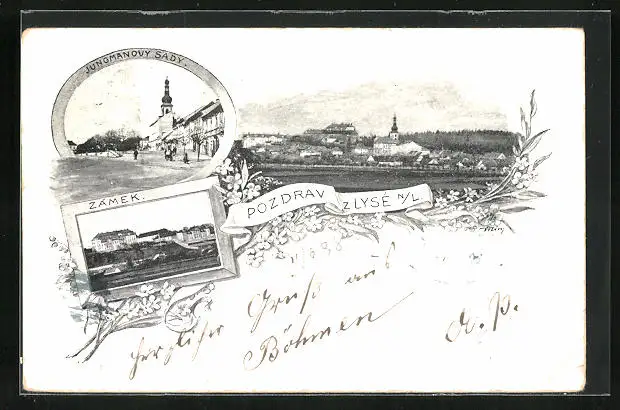 JUNGMANOVY SADY.
ZÁMEK.
POZDRAV Z LYSÉ N/L.
herzlicher Gruß aus
Böhmen
A. P.